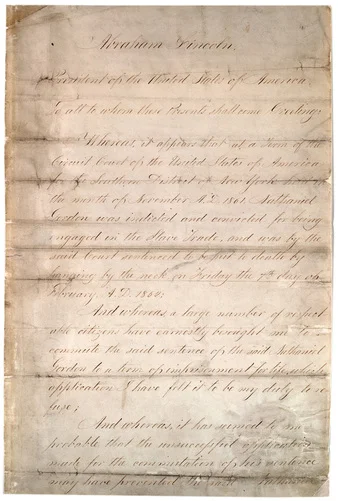 Abraham Lincoln,
President of the United States of America,
To all to whom these Presents shall come Greeting:
Whereas, it appears that at a Term of the
Circuit Court of the United States of America
for the Southern District of New York held in
the month of November A.D. 1861, Nathaniel
Gordon was indicted and convicted for being
engaged in the Slave Trade, and was by the
said Court sentenced to be put to death by
hanging by the neck on Friday the 7th day of
February, A.D. 1862;
And whereas, a large number of respect
able citizens have earnestly besought me to
commute the said sentence of the said Nathaniel
Gordon to a term of imprisonment for life, which
application I have felt it to be my duty to re
fuse;
And whereas, it has seemed to me
probable that the unsuccessful application
made for the commutation of his sentence
may have prevented the said Nathaniel